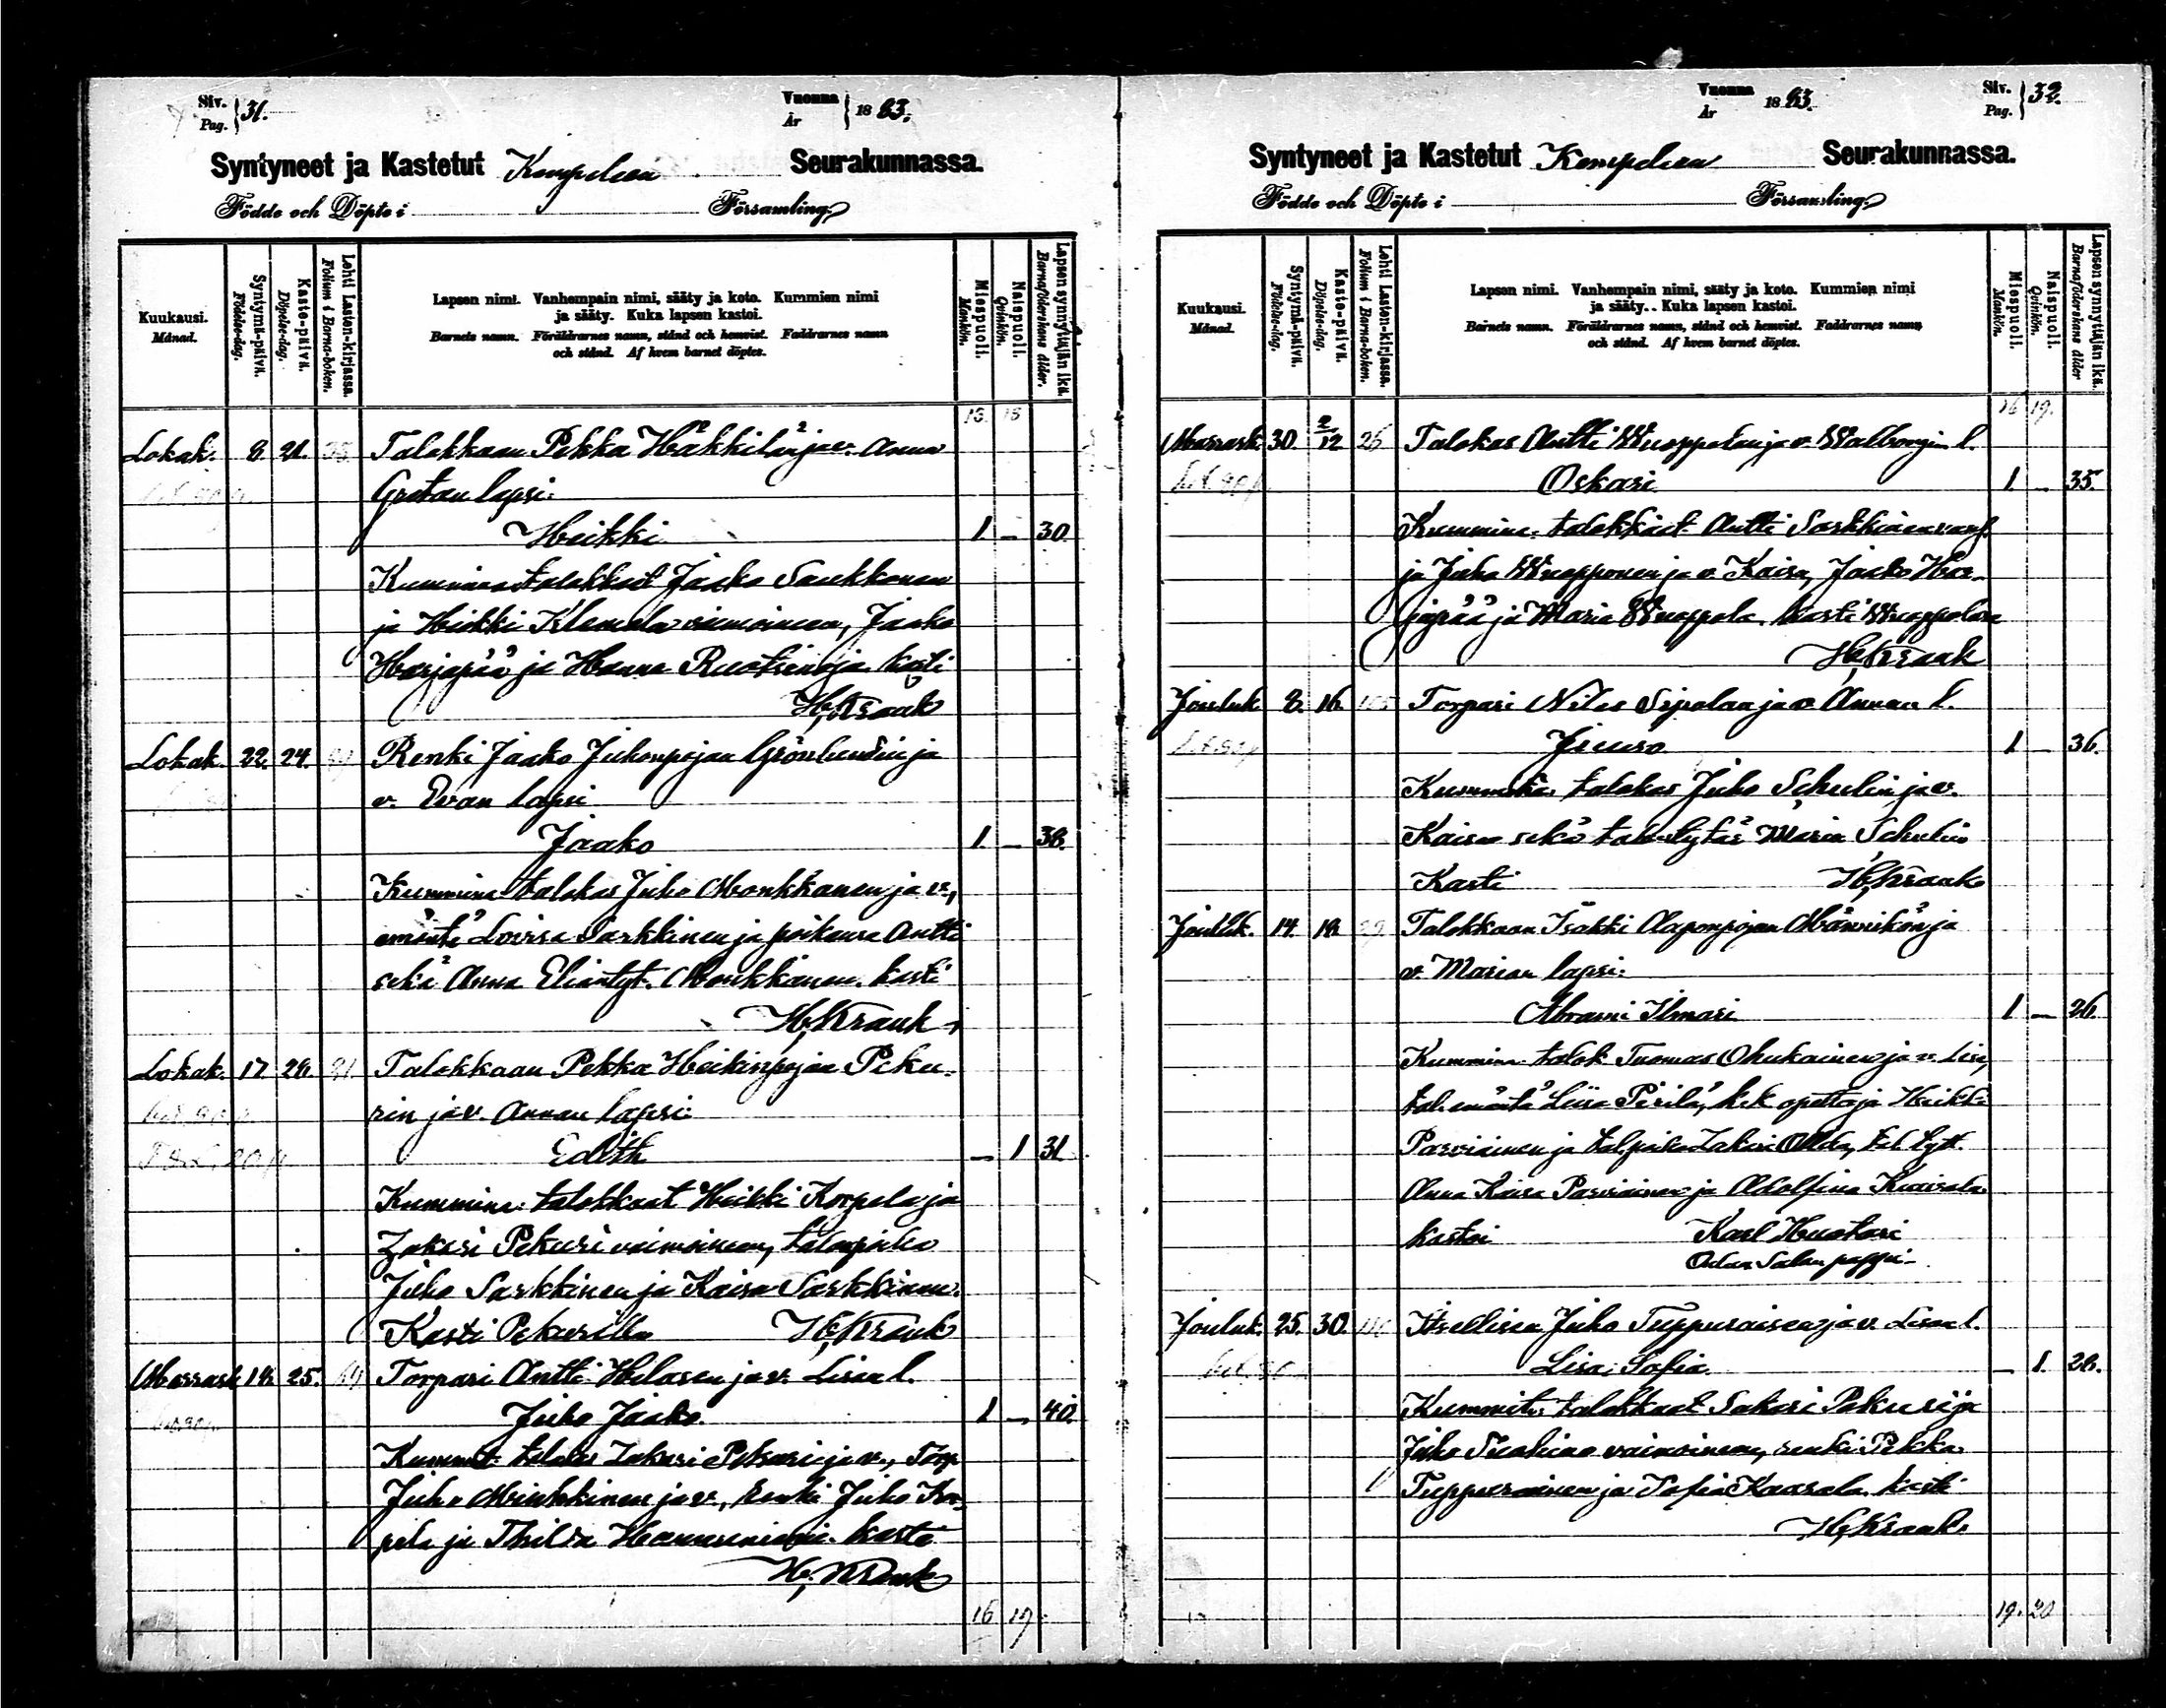 Siv. Pag. } 31.
Vuonna År } 1883.
Syntyneet ja Kastetut Kempeleen Seurakunnassa.
Födde och Döpte i Församling.
Kuukausi. Månad.
Syntymä-päivä. Födelse-dag.
Kaste-päivä. Döpelse-dag.
Lehti Lasten-kirjassa. Folium i Barna-boken.
Lapsen nimi. Vanhempain nimi, sääty ja koto. Kummien nimi
ja sääty. Kuka lapsen kastoi.
Barnets namn. Föräldrarnes namn, stånd och hemvist. Faddrarnes namn
och stånd. Af hvem barnet döptes.
Miespuoli. Mankön.
Naispuoli. Qvinkön.
Lapsen synnyttäjän ikä. Barnaföderskans ålder.
13. 18
Lokak. 8. 21. Talokkaan Pekka Häkkilän ja v. Anna
Gretan lapsi:
Heikki 1 – 30
Kummina talokkaat Jaako Saukkonen
ja Heikki Klemola vaimoineen, Jaako
Harjapää ja Hanna Ruotsinoja. kasti
H. Krank
Lokak. 22. 24. Renki Jaako Juhonpojan Grönlundin ja
v. Evan lapsi
Jaako 1 – 38.
Kummina talokas Juho Monkkanen ja v.,
emäntä Lovisa Sarkkinen ja poikansa Antti
sekä Anna Eliantyt. Monkkanen. kasti
H. Krank
Lokak. 17 28. 91. Talokkaan Pekka Heikinpojan Peku-
rin ja v. Annan lapsi:
Edith – 1 31
Kummina: talokkaat Heikki Korpela ja
Zakari Pekuri vaimoineen, talonpoika
Juho Sarkkinen ja Kaisa Sarkkinen.
Kasti Pekurilla H. Krank
Marrask 18. 25. Torpari Antti Helasen ja v. Lisan l.
Juho Jaako. 1 – 40.
Kummit: talokas Zakari Pekuri ja v., Torp
Juho Minkkinen ja v., renki Juho Kor-
pela ja Thilda Hannuniemi. kasti
H. Krank
16 19
Vuonna År } 1883.
Siv. Pag. } 32.
Syntyneet ja Kastetut Kempeleen Seurakunnassa.
Födde och Döpte i Församling.
Kuukausi. Månad.
Syntymä-päivä. Födelse-dag.
Kaste-päivä. Döpelse-dag.
Lehti Lasten-kirjassa. Folium i Barna-boken.
Lapsen nimi. Vanhempain nimi, sääty ja koto. Kummien nimi
ja sääty. Kuka lapsen kastoi.
Barnets namn. Föräldrarnes namn, stånd och hemvist. Faddrarnes namn
och stånd. Af hvem barnet döptes.
Miespuoli. Mankön.
Naispuoli. Qvinkön.
Lapsen synnyttäjän ikä. Barnaföderskans ålder
16 19.
Marrask. 30. 2/12 26 Talokas Antti Wuoppolan ja v. Walborgin l.
Oskari 1. – 35.
Kummina: talokkaat Antti Sarkkinen
ja Juho Wuopponen ja v. Kaisa, Jaako Har-
japää ja Maria Wuoppola. kasti Wuoppolan
H. Krank
Jouluk 8. 16. Torpari Niilas Sipolan ja v. Annan l.
1 – 36.
talokas Juho Schulin ja v.
Kaisa sekä tal. tytär Maria Schulin
Kasti H. Krank
Jouluk. 14. 18. Talokkaan Isakki Aaponpojan Männikön ja
v. Marian lapsi:
Abrami Ilmari 1 – 26.
Kummina talok. Tuomas Ohukainen ja v. Lisa,
tal. emäntä Liisa Pirilä, kk. opettaja Heikki
Parviainen ja tal. poika Zakari tal. tytt.
Anna Kaisa Parviainen ja Adolfina Kaarala.
kastoi Karl Huotari
Oulun Salon pappi.
Jouluk. 25. 30. Itsellisen Juho Tuppuraisen ja v. Lisan l.
Lisa Sofia – 1. 28.
Kummit: talokkaat Sakari Pekuri ja
Juho vaimoineen, renki Pekka
Tuppurainen ja Sofia Kaarala. kasti
H. Krank.
19. 20